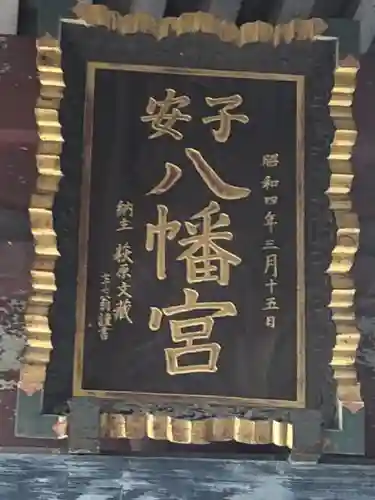 子安
八幡宮
昭和四年三月十五日
納主 萩原文蔵
七十七翁謹書